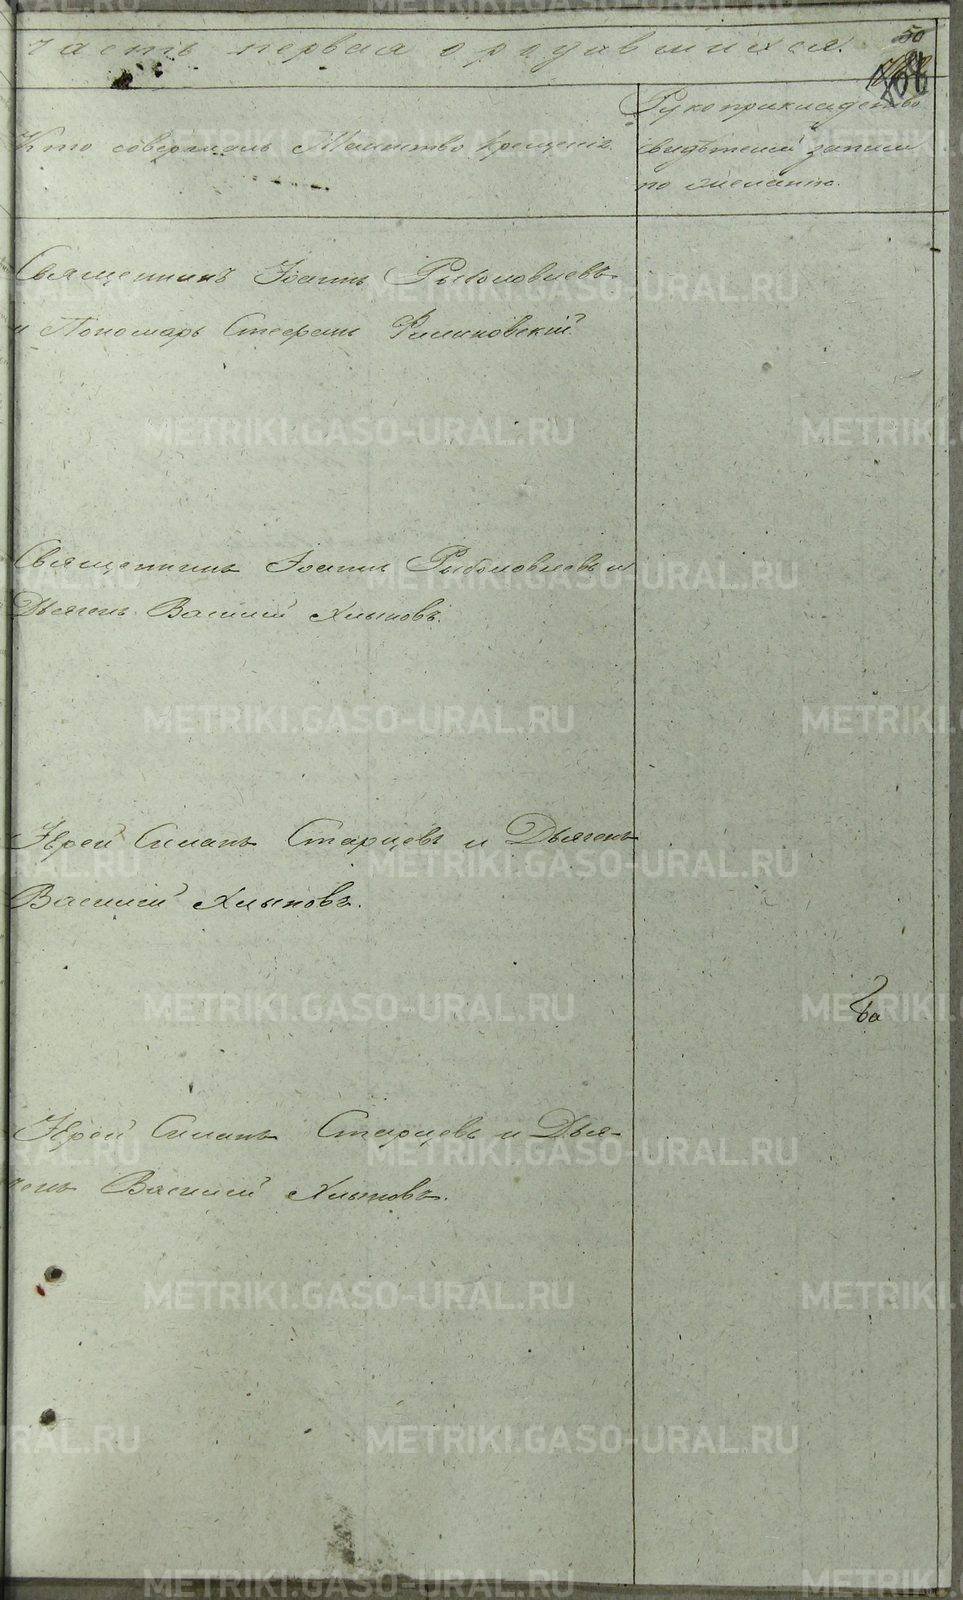 50
часть первая о родившихся.
Кто совершалъ Таинство Крещенія
Рукоприкладство
свидѣтелей записи
по желанію.
Священникъ Іоаннъ Рыболовлевъ
и Пономарь Стефанъ
Священникъ Іоаннъ Рыболовлевъ и
Дьячекъ Василій Хлыновъ.
Іерей Симанъ Старцевъ и Дьячекъ
Василій Хлыновъ.
Іерей Симанъ Старцевъ и Дья-
чекъ Василій Хлыновъ.
METRIKI.GASO-URAL.RU